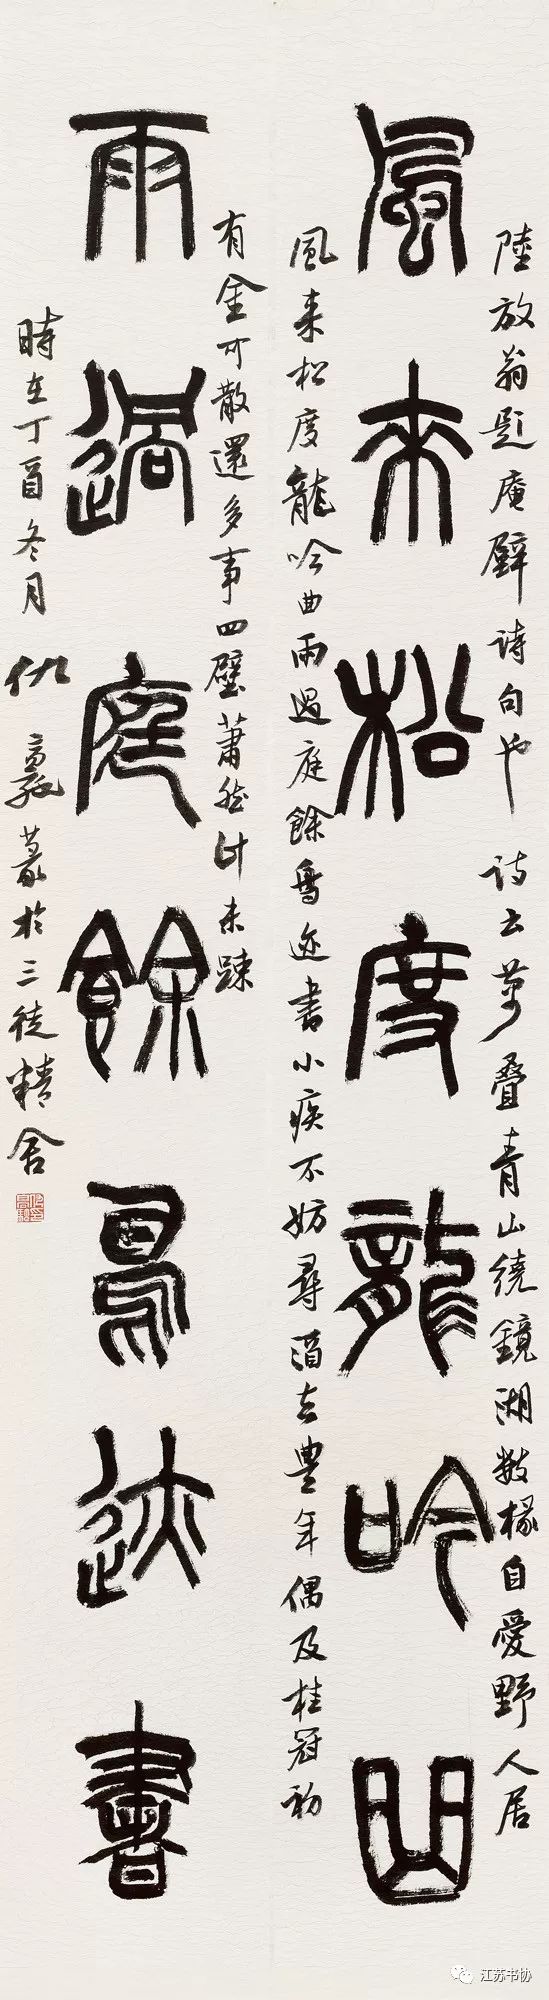 陸放翁題庵壁诗句也 诗云萬叠青山繞鏡湖数椽自愛野人居
風来松度龍吟曲
風来松度龍吟曲雨過庭餘鳥迹書小疾不妨尋酒去豊年偶及桂冠初
有金可散還多事四壁蕭然計未踈
雨過庭餘鳥迹書
時在丁酉冬月 仇高驰篆於三徒精舍
江苏书协